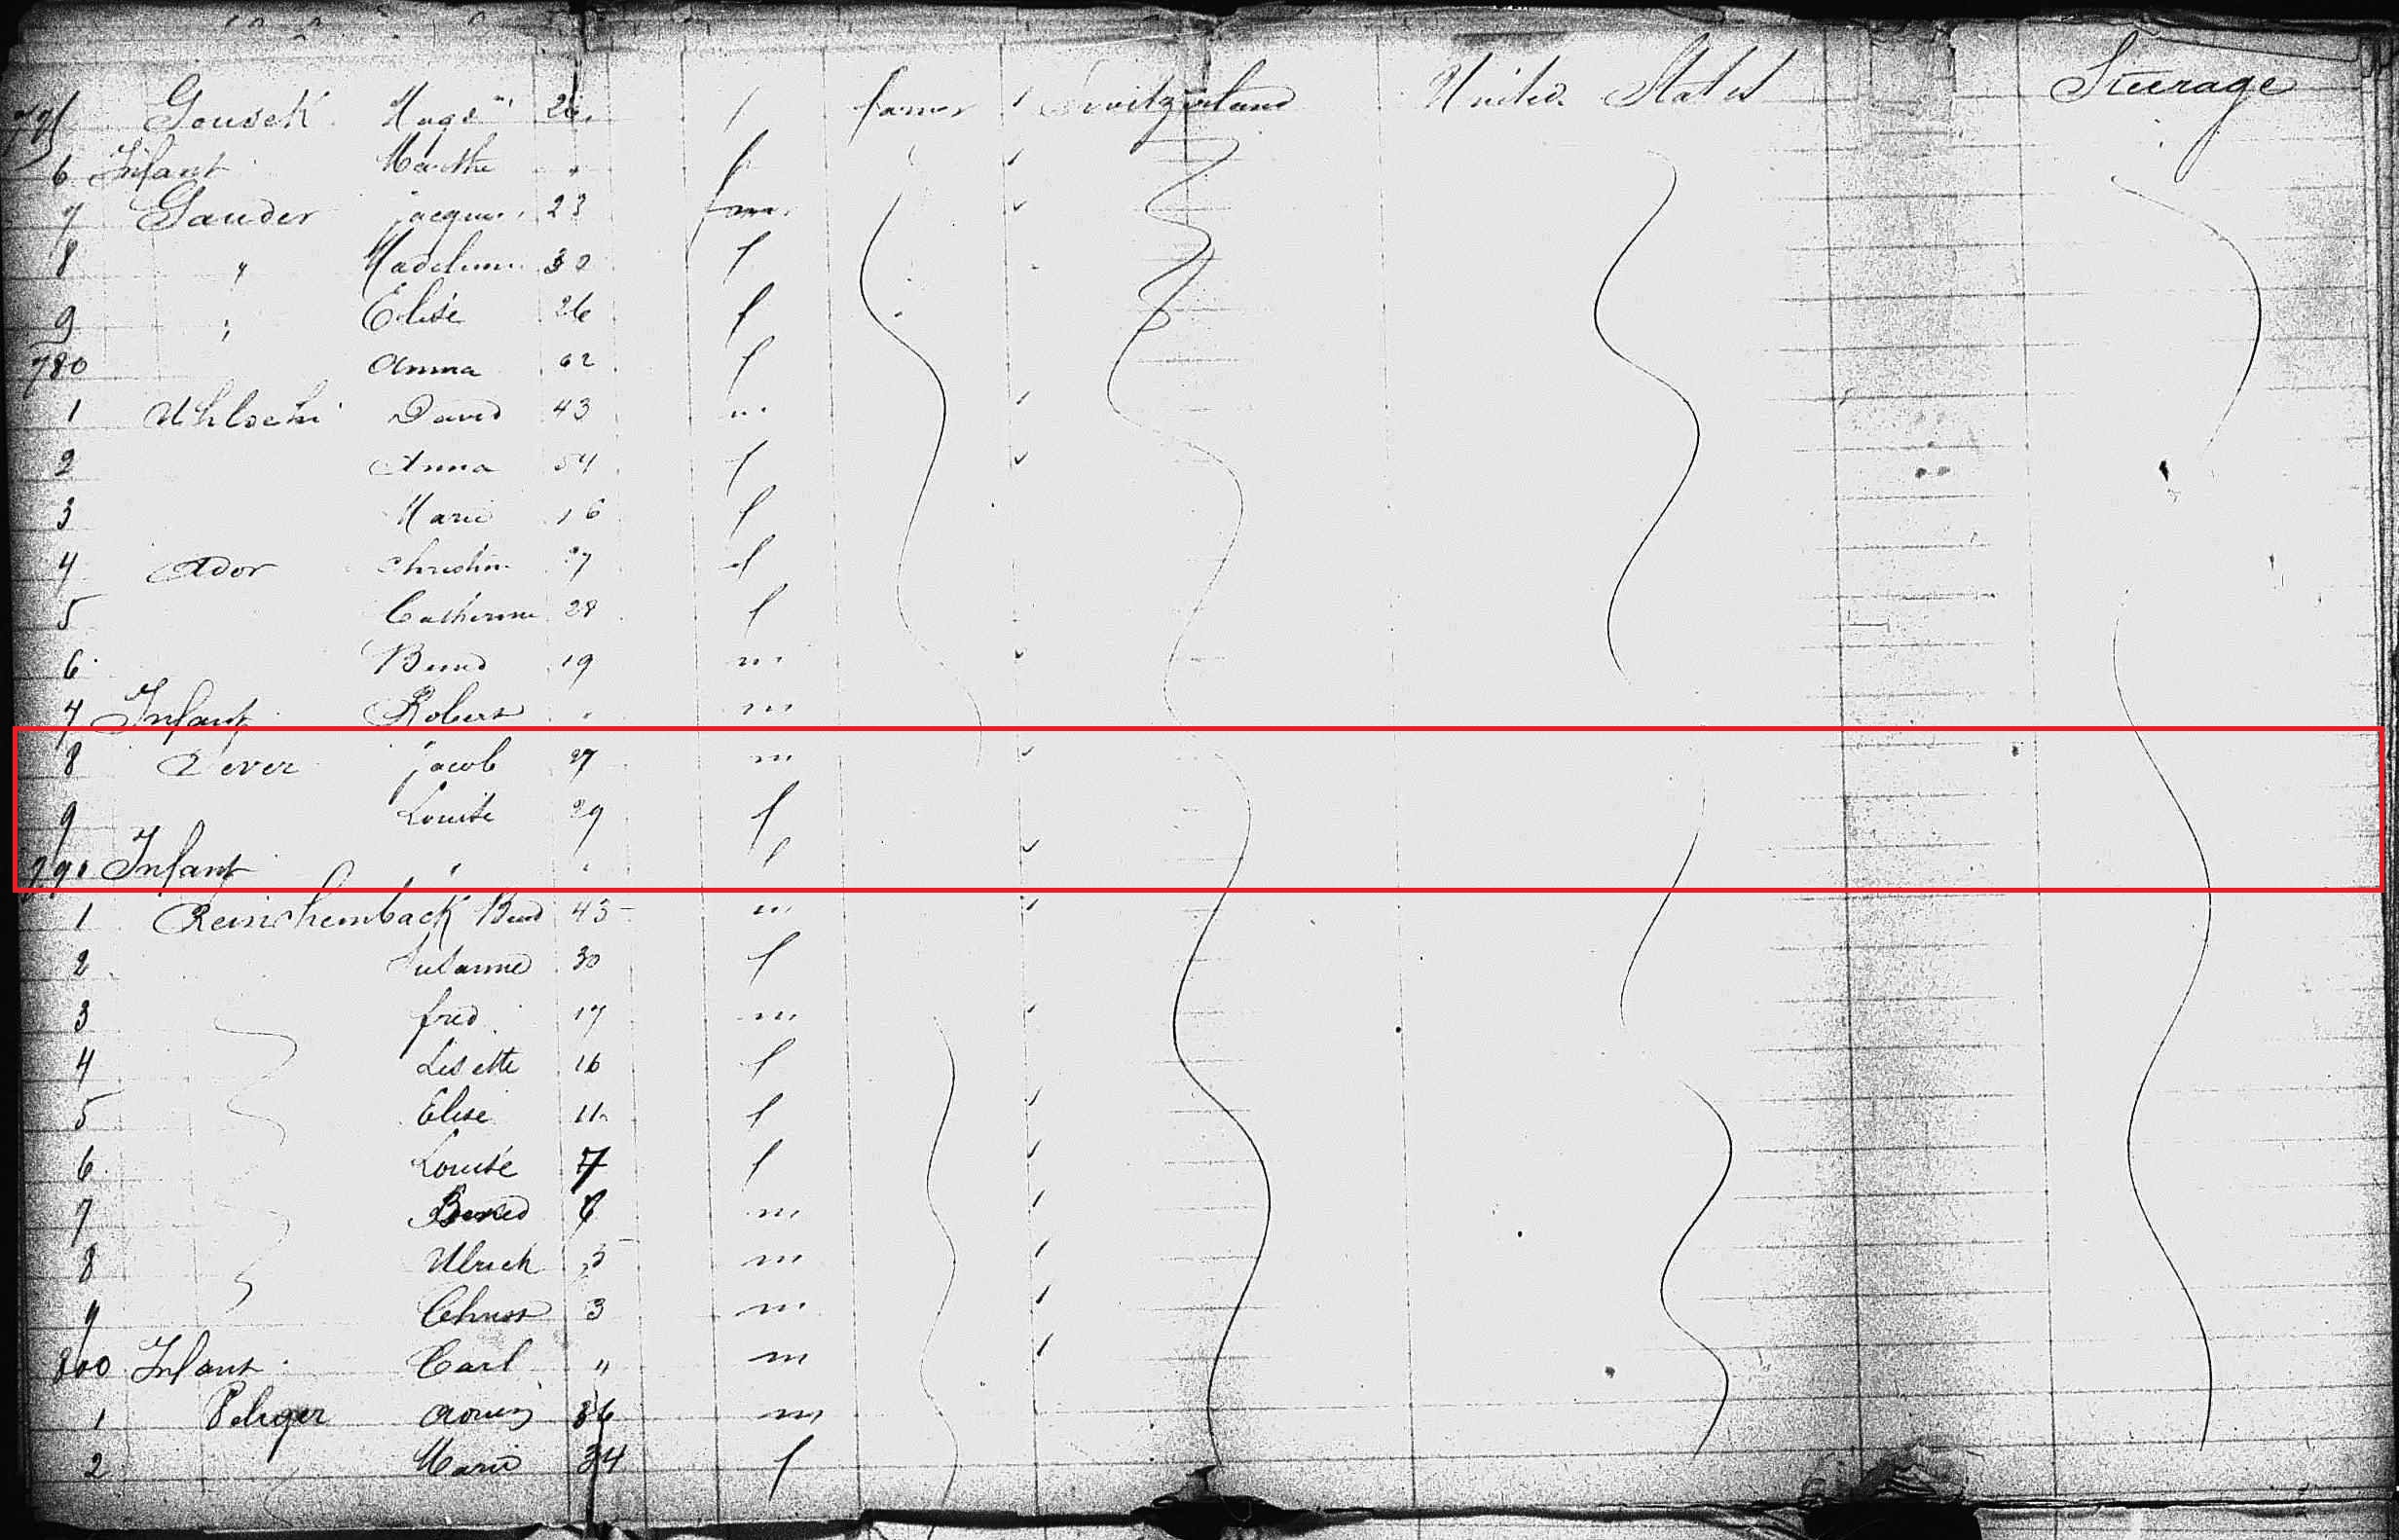 775 Gouseh Magd 26 f farmer Switzerland United States Steerage
6 Infant Marthe " f
7 Gauder jacques 23 m
8 " Madeleine 30 f
9 " Elise 26 f
780 Anna 62 f
1 David 43 m
2 Anna 54 f
3 Marie 16 f
4 Ador Christin 27 f
5 Catherine 28 f
6 Bened 19 m
7 Infant Robert " m
8 jacob 27 m
9 Louise 29 f
790 Infant " " f
1 Reinchenback Bened 45 m
2 Susanne 30 f
3 fred 17 m
4 Lisette 16 f
5 Elise 11 f
6 Louise 7 f
7 Bened 6 m
8 Ulrich 5 m
9 3 m
800 Infant Carl " m
1 Peliger 36 m
2 Marie 34 f